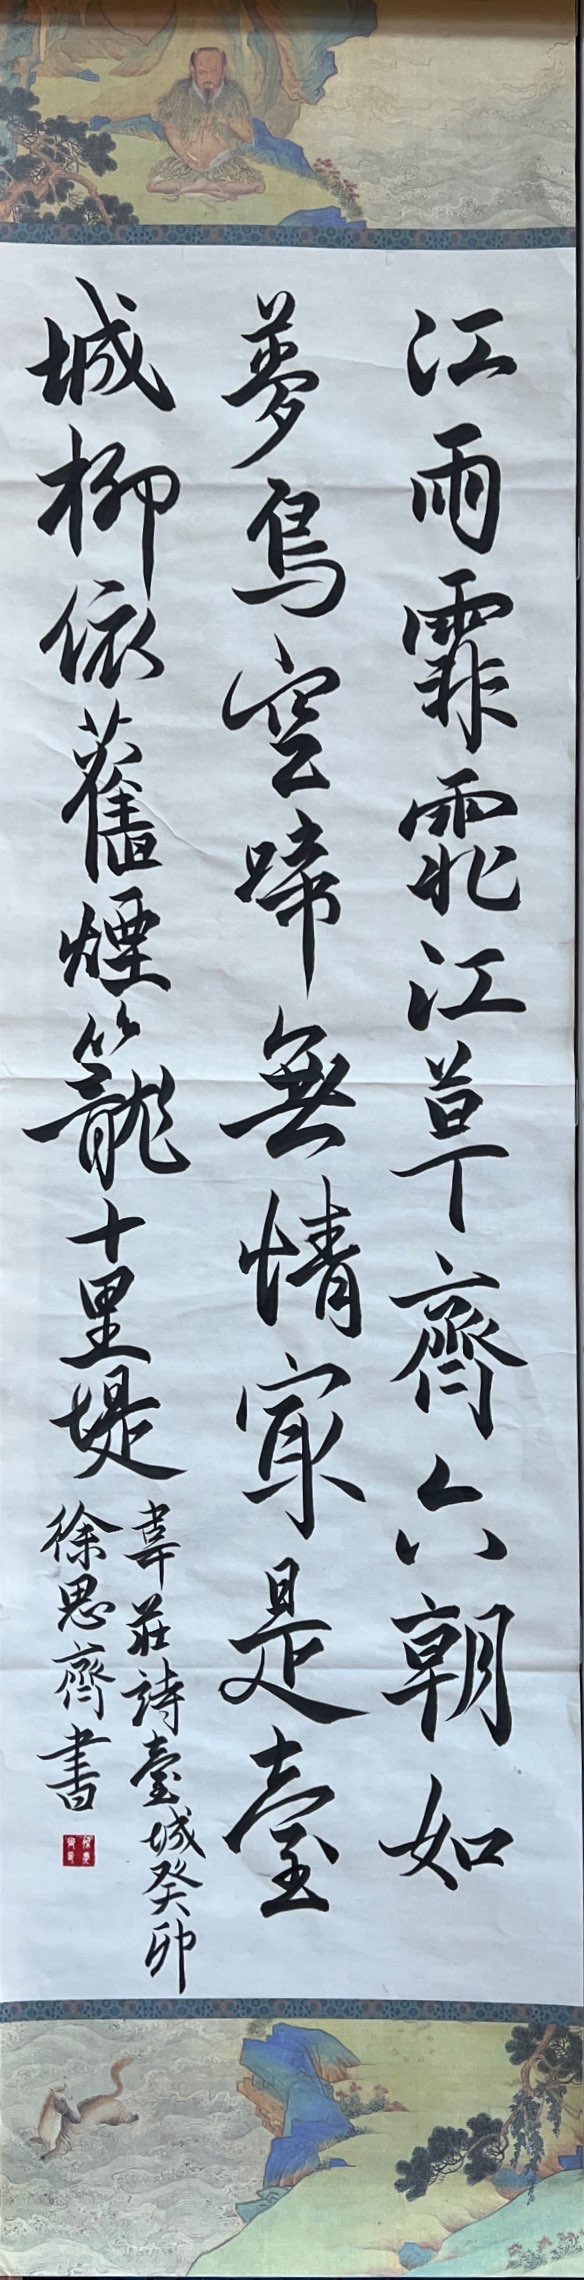 江雨霏霏江草齊六朝如
夢鳥空啼無情冣是臺
城柳依舊煙籠十里堤
韋莊詩臺城癸卯
徐思齊書